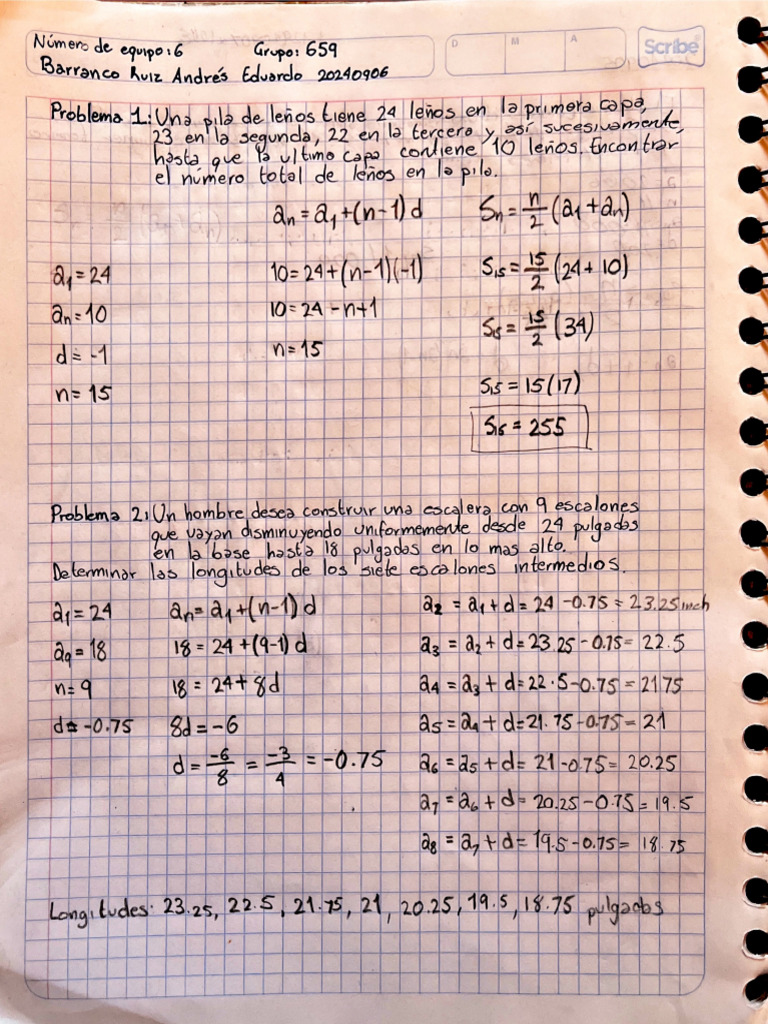 Número de equipo: 6 Grupo: 659
Barranco Ruiz Andrés Eduardo 20240906
D M A
Scribe
Problema 1: Una pila de leños tiene 24 leños en la primera capa,
23 en la segunda, 22 en la tercera y así sucesivamente,
hasta que la ultima capa contiene 10 leños. Encontrar
el número total de leños en la pila.
an = a1 + (n-1) d
Sn = n/2 (a1 + an)
a1 = 24
10 = 24 + (n-1)(-1)
S15 = 15/2 (24 + 10)
an = 10
10 = 24 - n + 1
S15 = 15/2 (34)
d = -1
n = 15
S15 = 15(17)
n = 15
S15 = 255
Problema 2: Un hombre desea construir una escalera con 9 escalones
que vayan disminuyendo uniformemente desde 24 pulgadas
en la base hasta 18 pulgadas en lo mas alto.
Determinar las longitudes de los siete escalones intermedios.
a1 = 24
an = a1 + (n-1) d
a2 = a1 + d = 24 - 0.75 = 23.25 inch
a9 = 18
18 = 24 + (9-1) d
a3 = a2 + d = 23.25 - 0.75 = 22.5
n = 9
18 = 24 + 8d
a4 = a3 + d = 22.5 - 0.75 = 21.75
d = -0.75
8d = -6
a5 = a4 + d = 21.75 - 0.75 = 21
d = -6/8 = -3/4 = -0.75
a6 = a5 + d = 21 - 0.75 = 20.25
a7 = a6 + d = 20.25 - 0.75 = 19.5
a8 = a7 + d = 19.5 - 0.75 = 18.75
Longitudes: 23.25, 22.5, 21.75, 21, 20.25, 19.5, 18.75 pulgadas